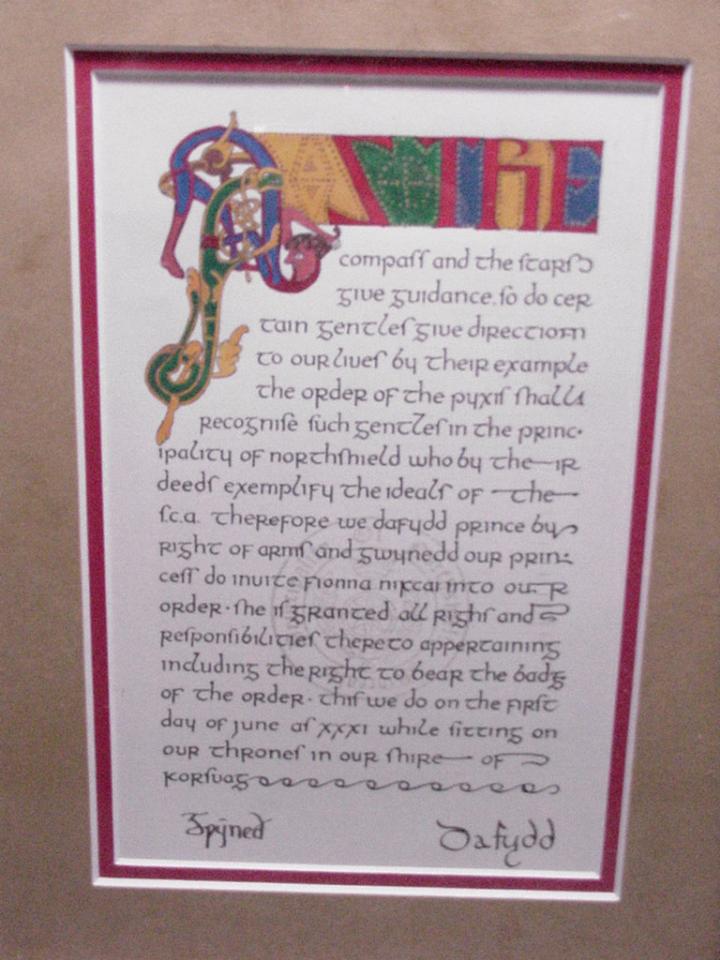 compass and the stars
give guidance, so do cer
tain gentles give direction
to our lives by their example
the order of the pyxis shall
recognise such gentles in the princ-
ipality of northshield who by the—ir
deeds exemplify the ideals of —the—
s.c.a. therefore we dafydd prince by
right of arms and gwynedd our prin-
cess do invite fionna into our
order. she is granted all righs and
responsibilities thereto appertaining
including the right to bear the badg
of the order. this we do on the first
day of june as xxxi while sitting on
our thrones in our shire— of
korsvag
Dafydd